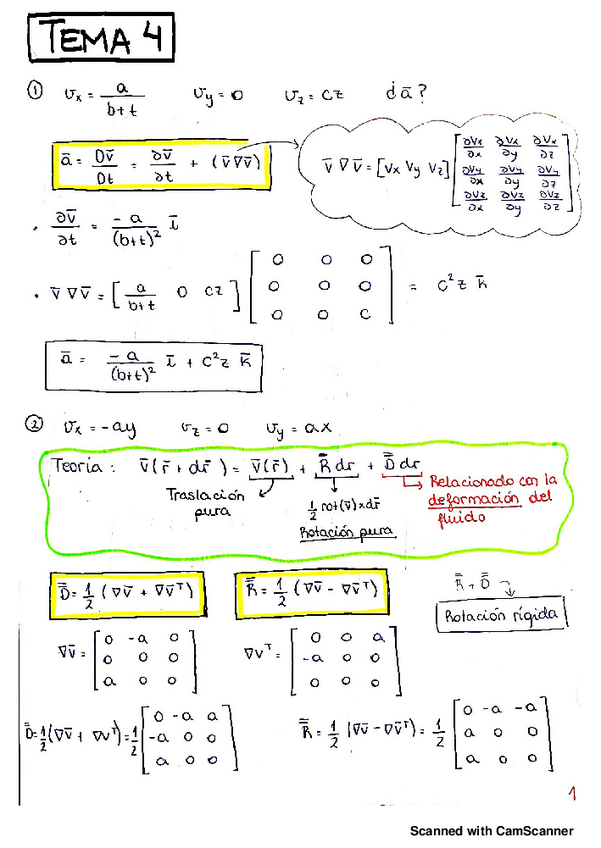 TEMA 4
① vx = a/(b+t)   vy = 0   vz = cz   d ā?
ā = Dv̄/Dt = ∂v̄/∂t + (v̄∇v̄)
v̄ ∇ v̄ = [Vx Vy Vz] [∂Vx/∂x ∂Vx/∂y ∂Vx/∂z
∂Vy/∂x ∂Vy/∂y ∂Vy/∂z
∂Vz/∂x ∂Vz/∂y ∂Vz/∂z]
• ∂v̄/∂t = -a/(b+t)² ī
• v̄ ∇ v̄ = [a/(b+t) 0 cz] [0 0 0
0 0 0
0 0 c] = c²z k̄
ā = -a/(b+t)² ī + c²z k̄
② vx = -ay   vz = 0   vy = ax
Teoría: v̄(r̄ + dr̄) = v̄(r̄) + R̿ dr + D̿ dr
Traslación pura
½ rot(v̄) x dr̄
Rotación pura
Relacionado con la
deformación del
fluido
D̿ = ½ (∇v̄ + ∇v̄ᵀ)
R̿ = ½ (∇v̄ - ∇v̄ᵀ)
R̿ + D̿
Rotación rígida
∇v̄ = [0 -a 0
0 0 0
a 0 0]
∇vᵀ = [0 0 a
-a 0 0
0 0 0]
D̿ = ½(∇v̄ + ∇vᵀ) = ½ [0 -a a
-a 0 0
a 0 0]
R̿ = ½ (∇v̄ - ∇v̄ᵀ) = ½ [0 -a -a
a 0 0
a 0 0]
1
Scanned with CamScanner